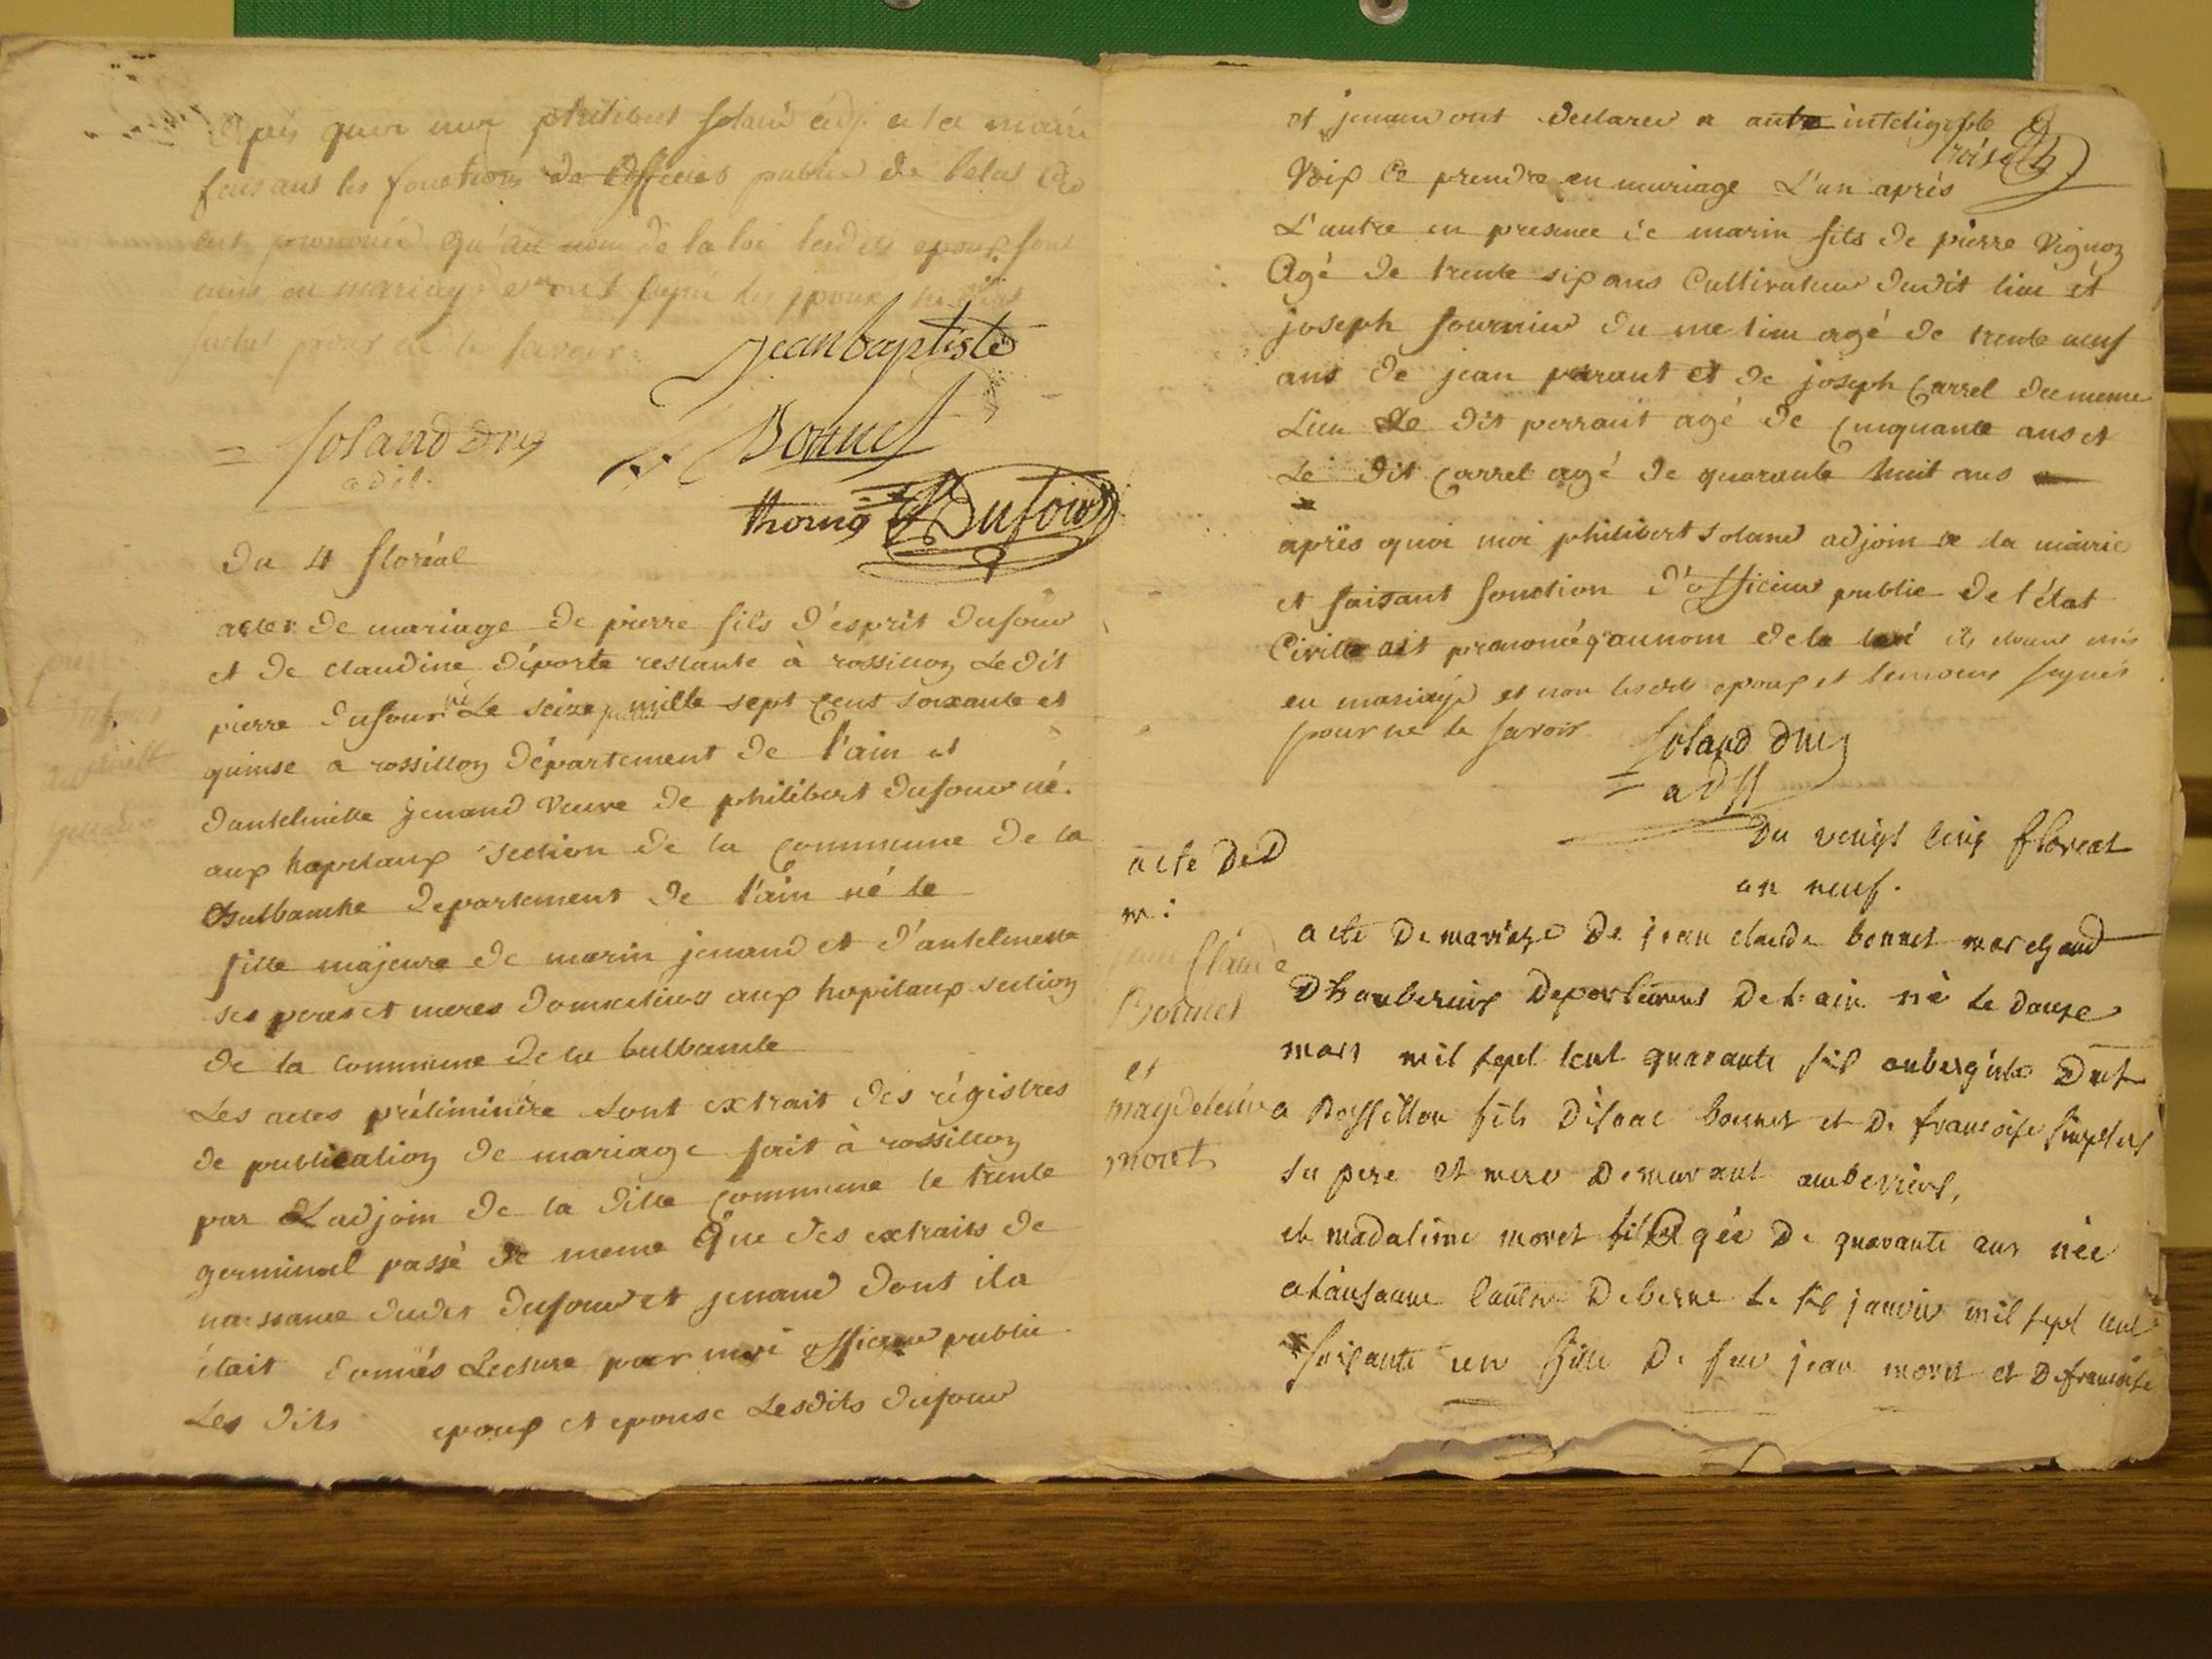 après quoi moi philibert soland adj. a la mairie
faisant les fonctions de officier public de l'etat
ont prononcé qu'au nom de la loi lesdits epoux sont
unis en mariage et ont signé les epoux
pour ne le savoir.
jean baptiste
soland
adj.
Bonnet
thomas Dufour
Du 4 floréal
acter de mariage de pierre fils d'esprit dufour
et de claudine déporte restante à rossillon Le dit
pierre dufour né Le seize juillet mille sept cent soixante et
quinse a rossillon département de l'ain et
d'antelmette jenand veuve de philibert dufour né
aux hopitaux section de la commune de la
Bulbanche departement de l'ain né le
fille majeure de marin jenand et d'antelmette
ses peres et meres domiciliers aux hopitaux section
de la commune de la bulbanche
Les actes préliminére sont extrait des régistres
de publication de mariage fait à rossillon
par L adjoin de la ditte commune le trente
germinal passé de meme que des extraits de
naissance dudit dufour et jenand dont il a
était donnés Lecture par moi officier public
Les dits epoux et epouse Lesdits dufour
et jenand ont declarer a intéligible
troisel
voix ce prendre en mariage L'un aprés
L'autre en presence de marin fils de pierre vignoz
Agé de trente six ans Cultivateur dudit lieu et
joseph fournier du me lieu agé de trente neuf
ans de jean perraut et de joseph Carrel de meme
Lieu Le dit perraut agé de cinquante ans et
Le dit Carrel agé de quarante huit ans
aprës quoi moi philibert soland adjoin a la mairie
et faisant fonction d'officier public de l'état
Civille ait prononcé q'au nom de la loi ils etaient unis
en mariage et non lesdits epoux et temoins signés
pour ne le savoir
soland
adj
Du vengt cinq floreal
an neuf.
acte De D
m :
jean Claude
Bonnet
et
magdeleine
moret
acte De mariage De jean claude bonnet marchand
D'hamberieux Departement De l'ain né le douze
mars mil sept cent quarante six aubergiste Dmt
a Rossillon fils D'isaac bonnet et De françoise
sa pere et mere Demeurant amberieux,
et madaleine moret fille agée De quarante ans née
a lausanne canton De berne le six janvier mil sept cent
soixante un fille De feu jean moret et De françoise